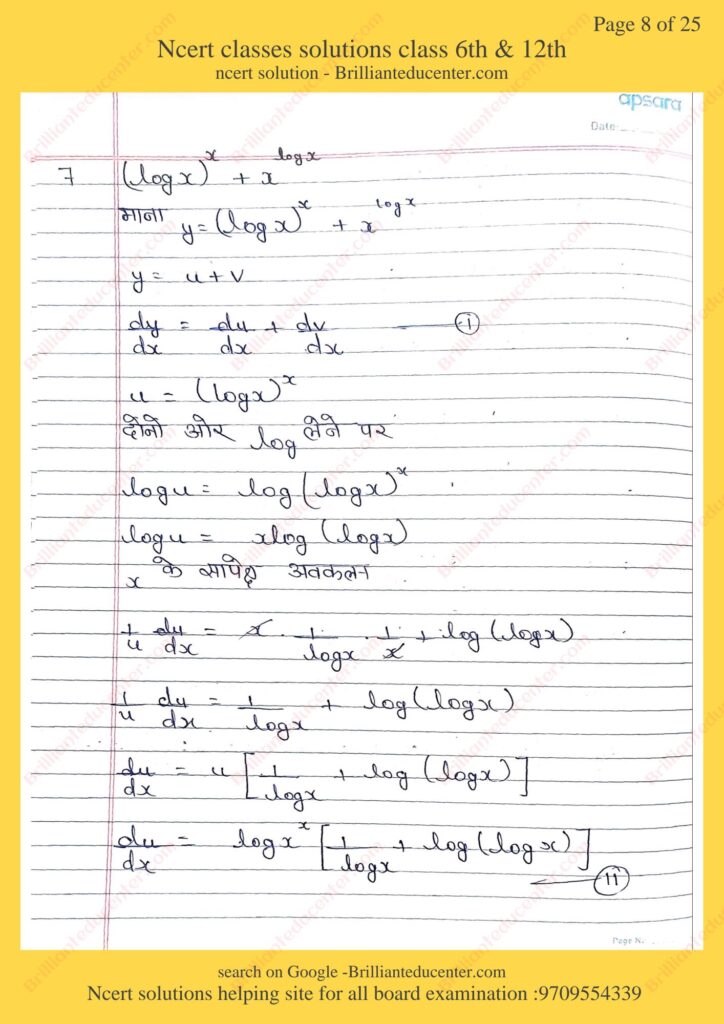 Page 8 of 25
Ncert classes solutions class 6th & 12th
ncert solution - Brillianteducenter.com
apsara
Date
7 (logx)^x + x^logx
माना y = (logx)^x + x^logx
y = u+v
dy/dx = du/dx + dv/dx —— (I)
u = (logx)^x
दोनो ओर log लेने पर
logu = log(logx)^x
logu = xlog(logx)
x के सापेक्ष अवकलन
1/u du/dx = x · 1/logx · 1/x + log(logx)
1/u du/dx = 1/logx + log(logx)
du/dx = u [1/logx + log(logx)]
du/dx = logx^x [1/logx + log(logx)]
—— (II)
Page N.
search on Google -Brillianteducenter.com
Ncert solutions helping site for all board examination :9709554339